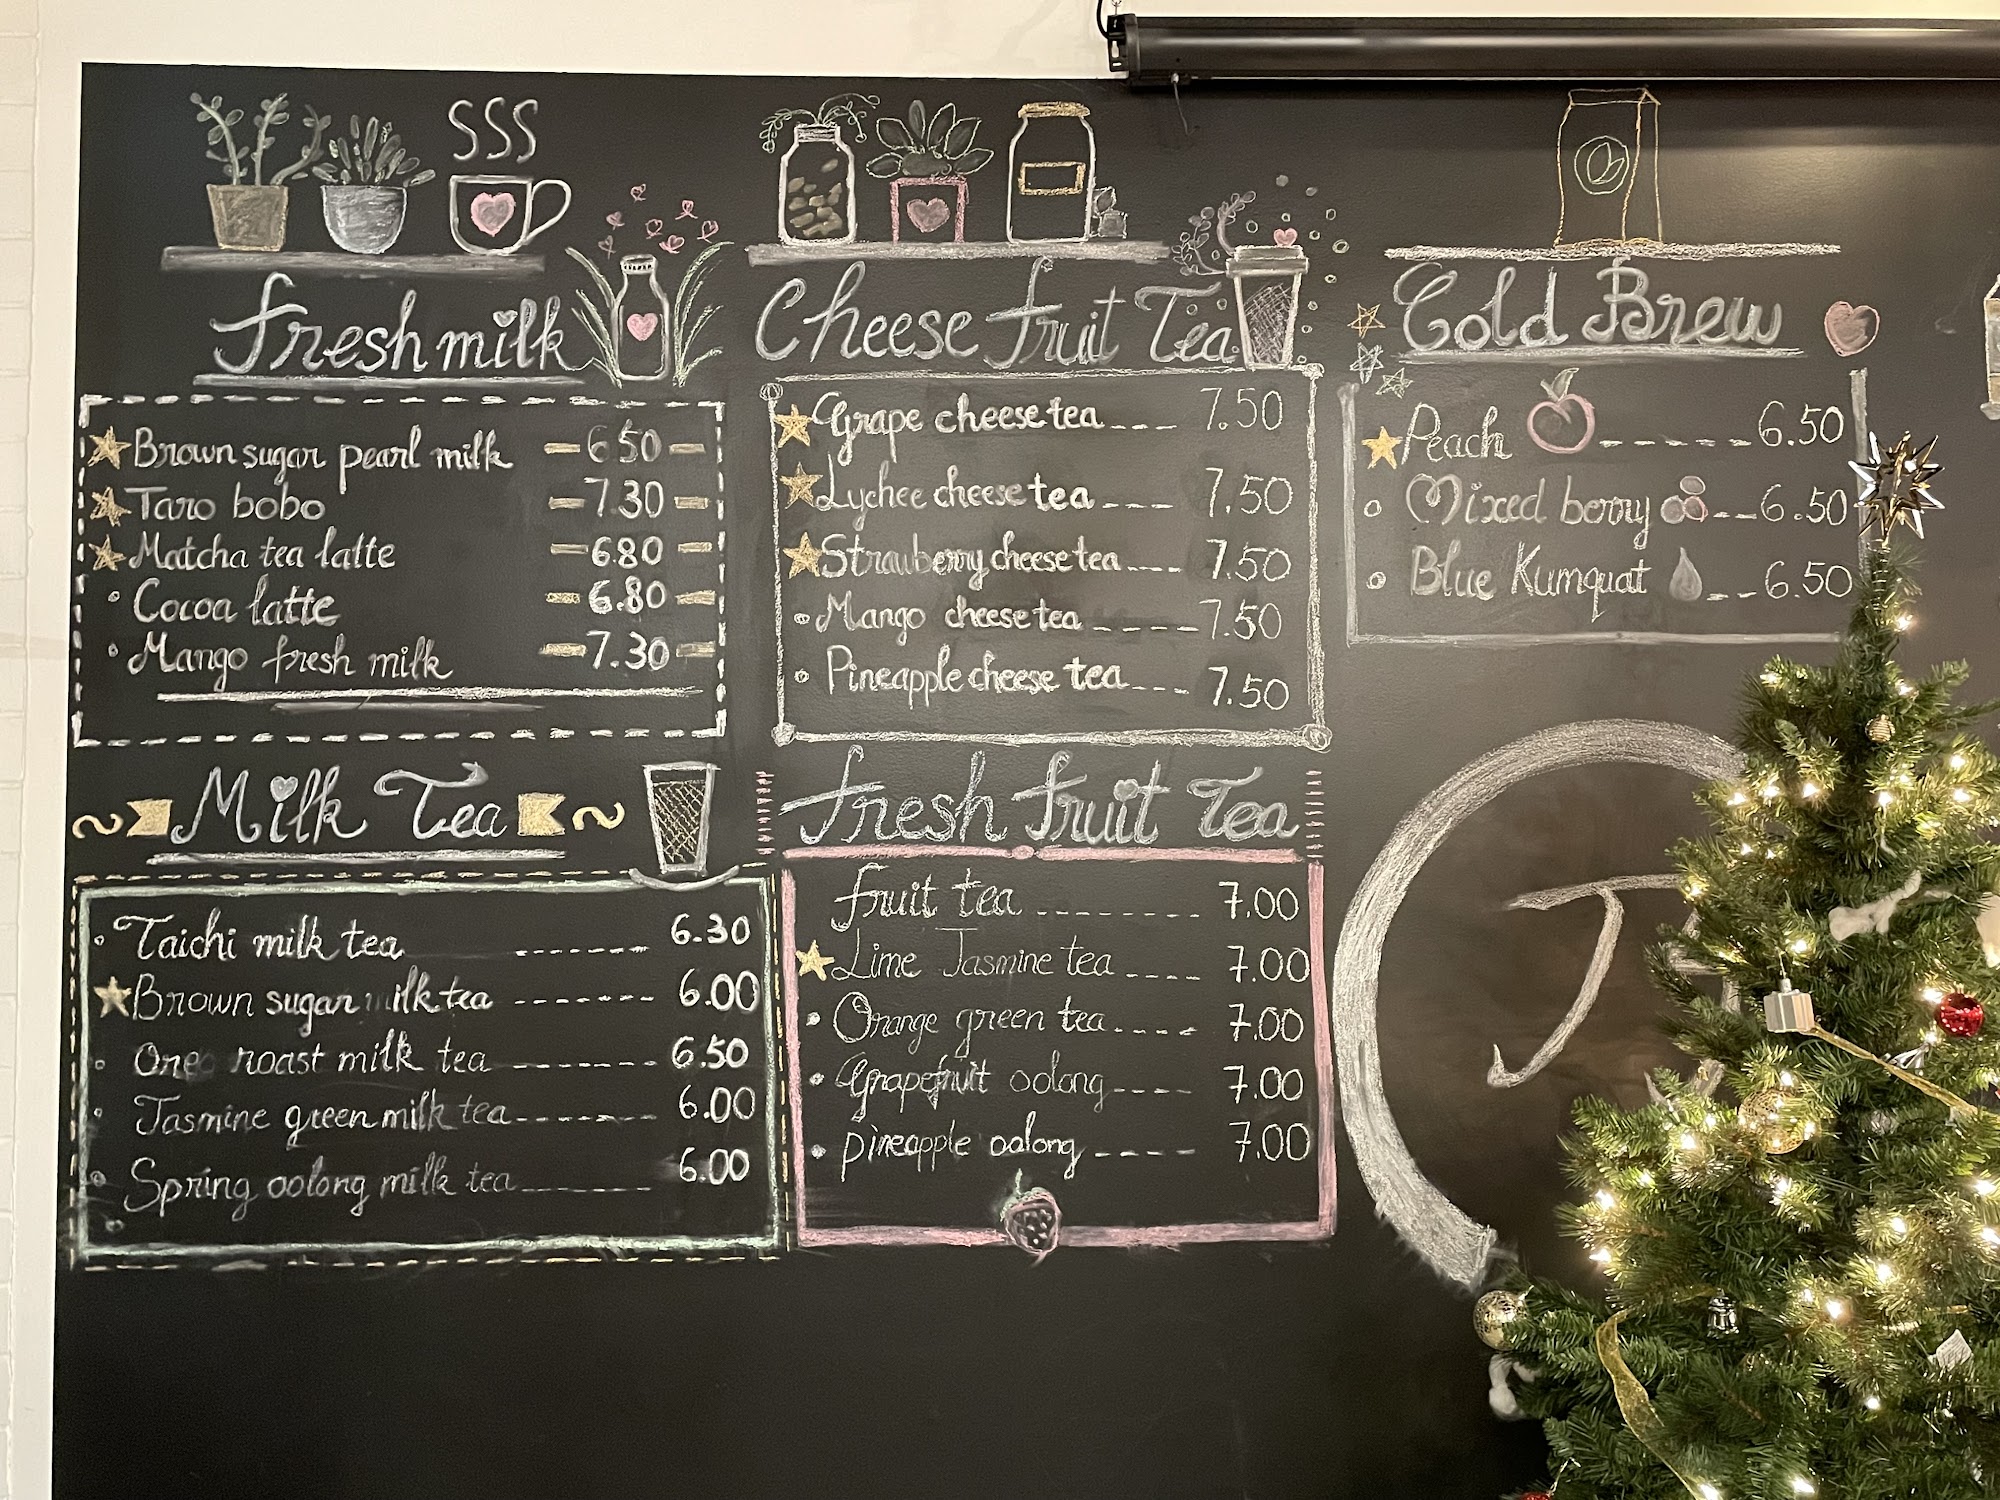 Fresh milk
Brown sugar pearl milk 6.50
Taro bobo 7.30
Matcha tea latte 6.80
Cocoa latte 6.80
Mango fresh milk 7.30
Milk Tea
Taichi milk tea 6.30
Brown sugar milk tea 6.00
roast milk tea 6.50
Jasmine green milk tea 6.00
Spring oolong milk tea 6.00
Cheese fruit Tea
Grape cheese tea 7.50
Lychee cheese tea 7.50
Strawberry cheese tea 7.50
Mango cheese tea 7.50
Pineapple cheese tea 7.50
Fresh fruit Tea
fruit tea 7.00
Lime Jasmine tea 7.00
Orange green tea 7.00
Grapefruit oolong 7.00
pineapple oolong 7.00
Cold Brew
Peach 6.50
Mixed berry 6.50
Blue Kumquat 6.50